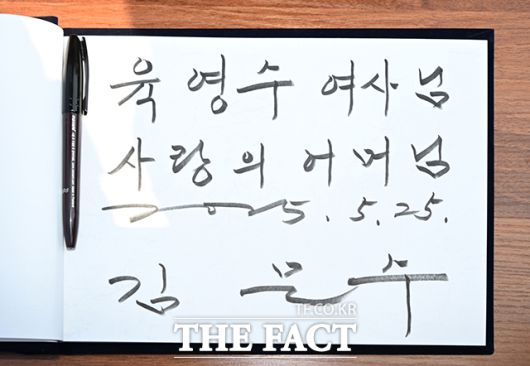 육영수 여사님
사랑의 어머님
2025. 5. 25.
김문수
TF.CO.KR
THE FACT